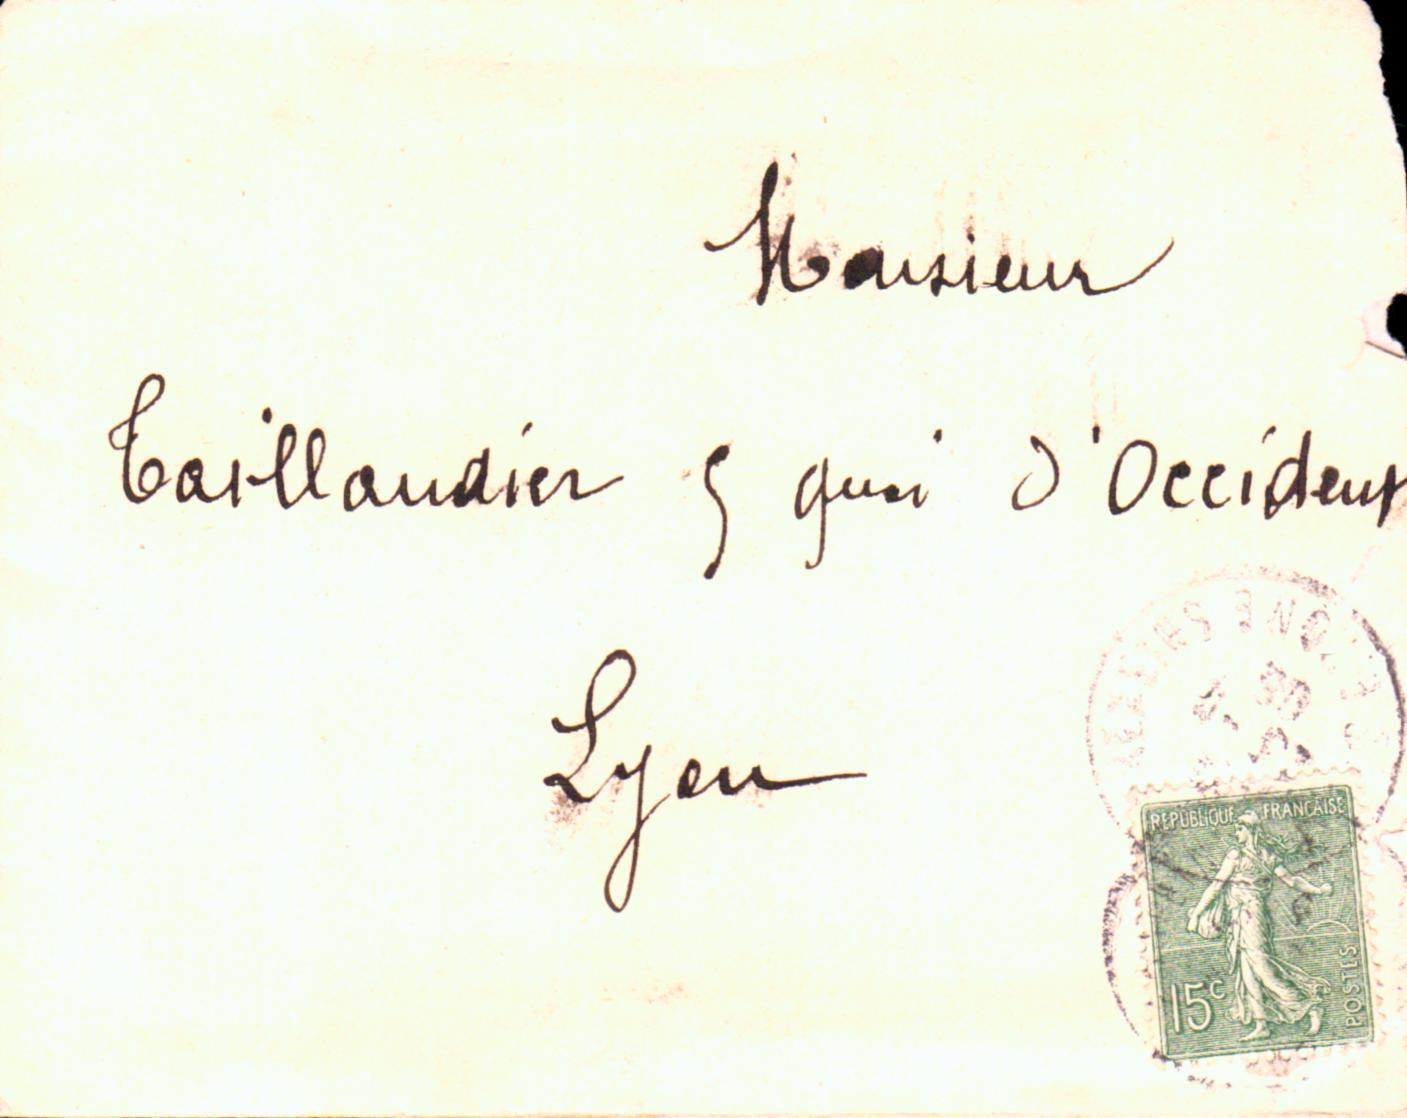 Monsieur
Taillandier 5 quai d'Occident
Lyon
RHONE
REPUBLIQUE FRANÇAISE
15c
POSTES